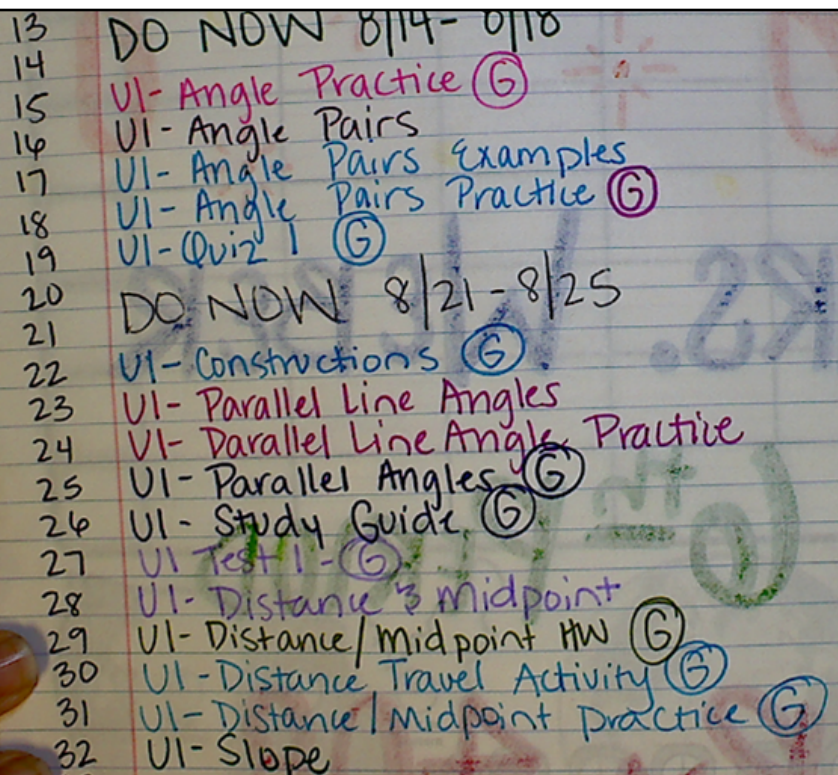 13 DO NOW 8/14- 8/18
14
15 U1- Angle Practice G
16 U1- Angle Pairs
17 U1- Angle Pairs Examples
18 U1- Angle Pairs Practice G
19 U1-Quiz 1 G
20 DO NOW 8/21-8/25
21
22 U1-Constructions G
23 U1- Parallel Line Angles
24 U1- Parallel Line Angle Practice
25 U1- Parallel Angles G
26 U1- Study Guide G
27 U1 Test 1- G
28 U1- Distance & Midpoint
29 U1- Distance/Midpoint HW G
30 U1-Distance Travel Activity G
31 U1-Distance/Midpoint Practice G
32 U1- Slope